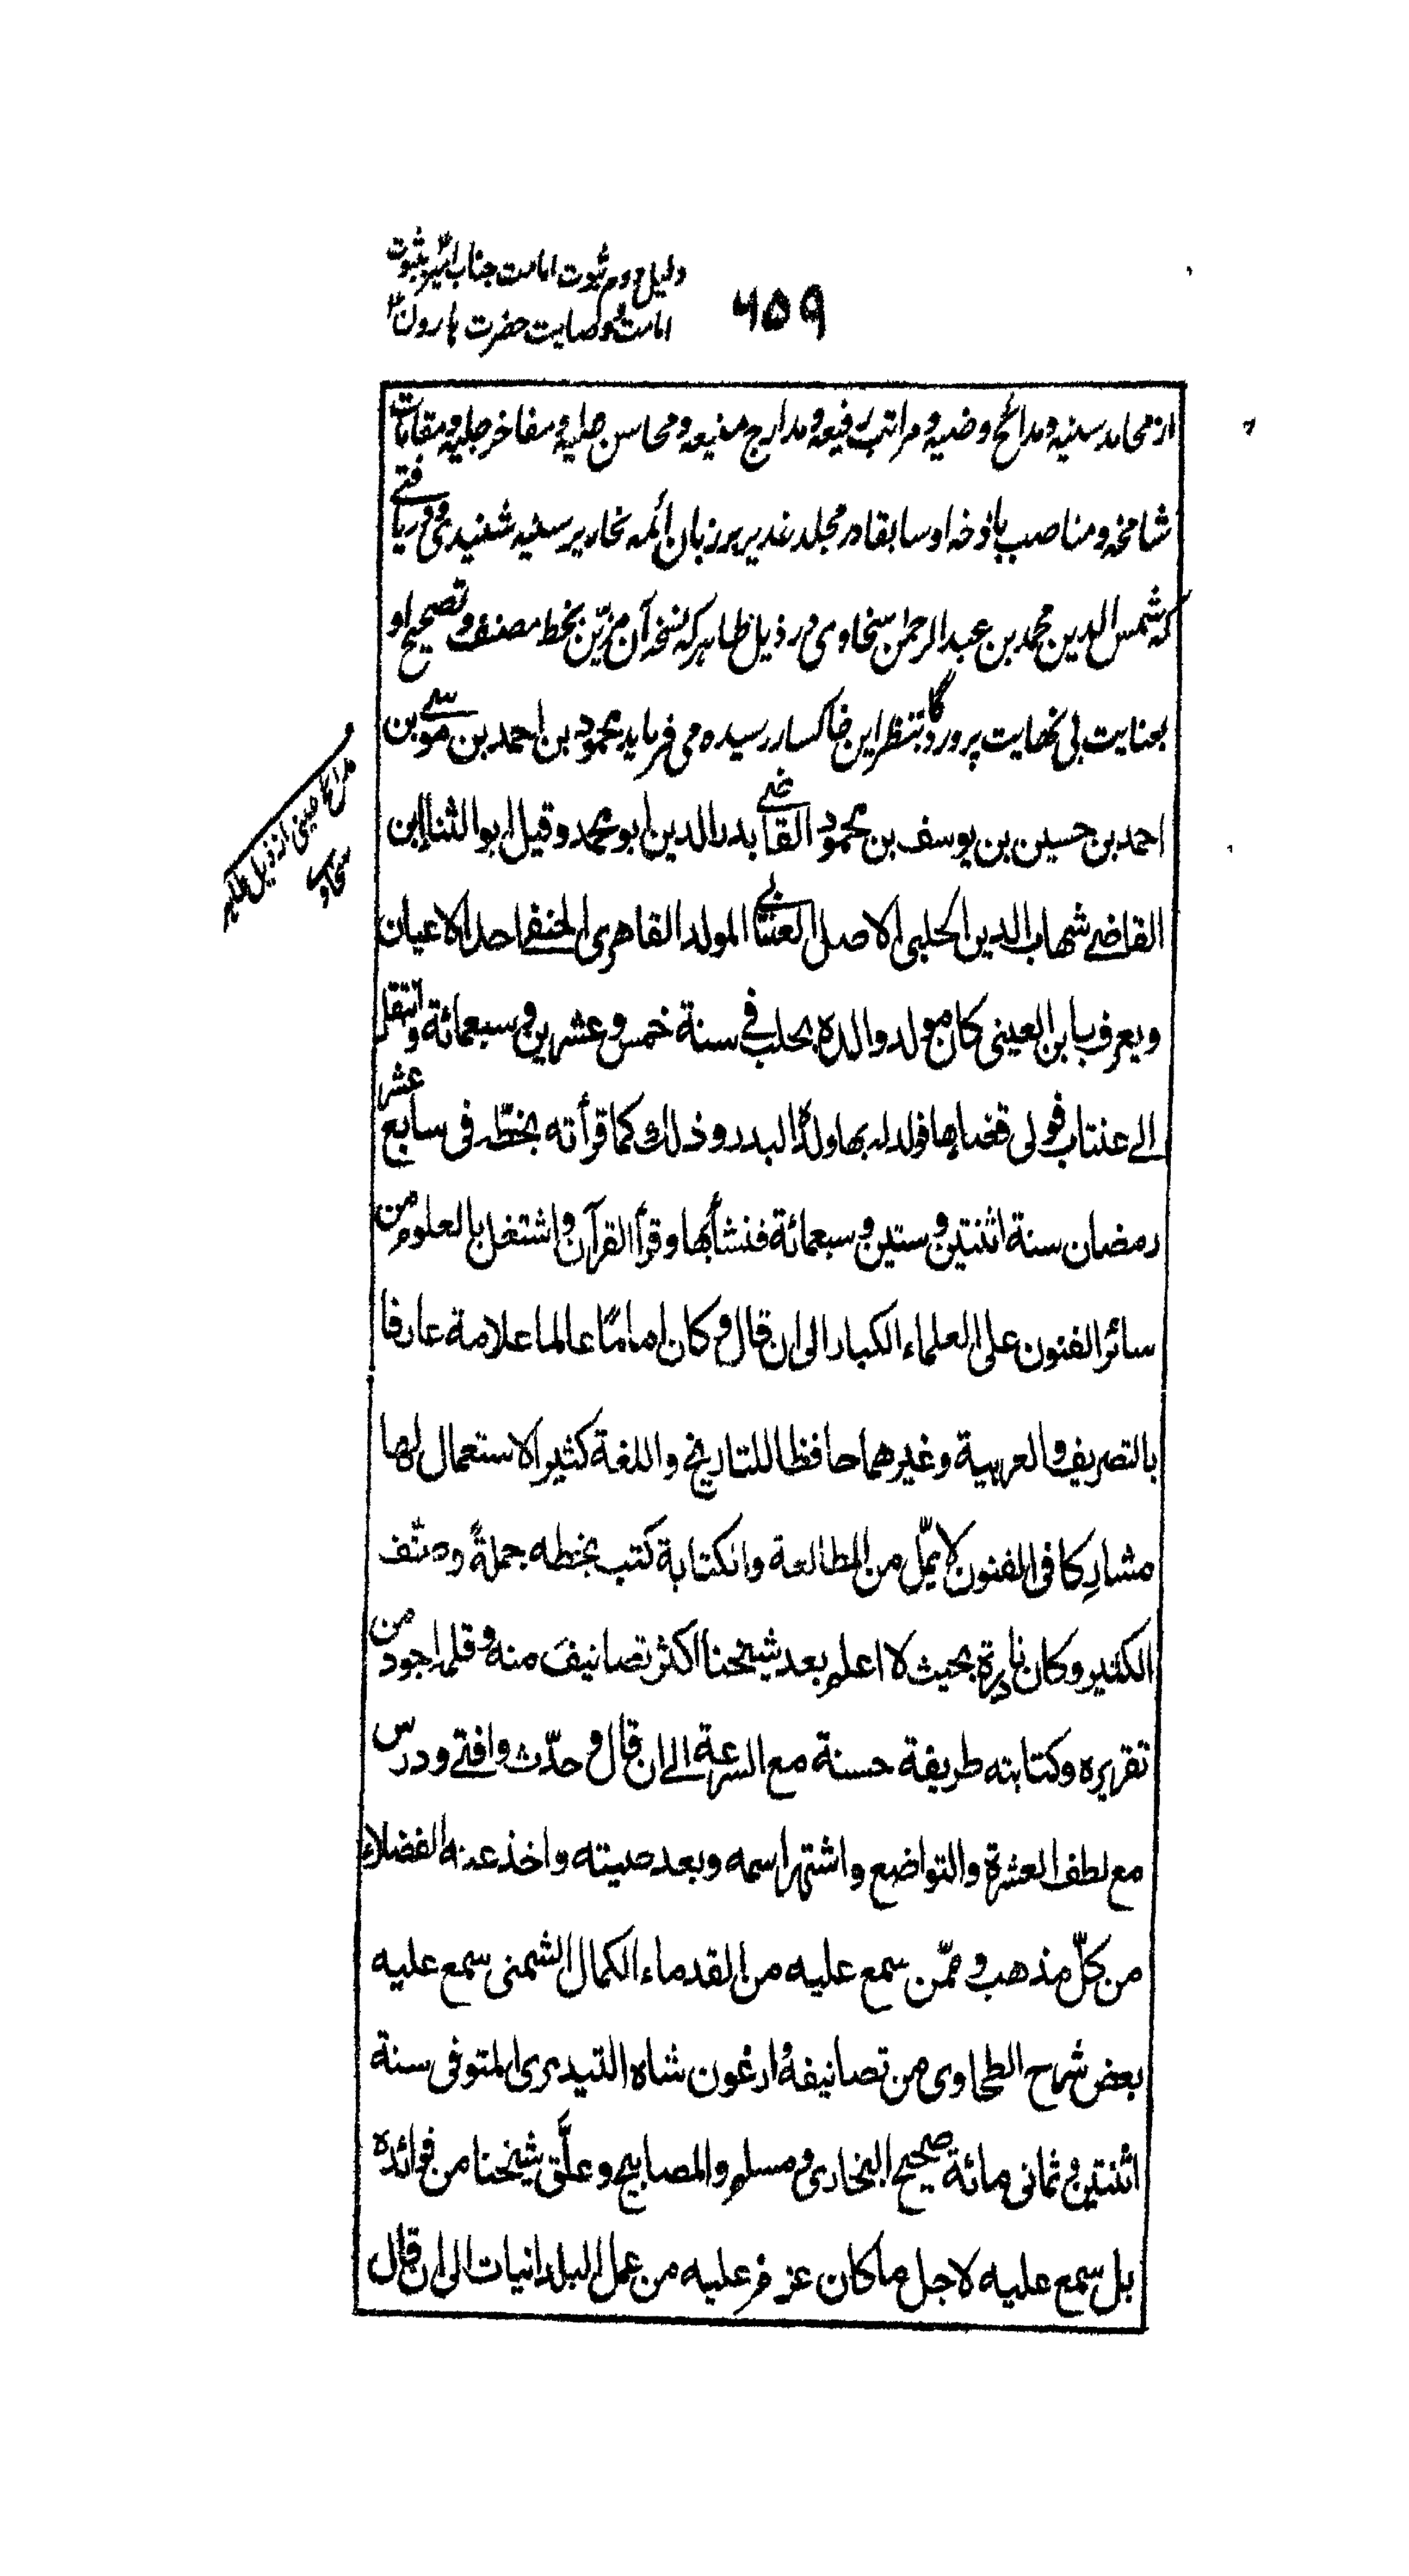 دلیل دوم ثبوت امامت جناب امیر بثبوت
امامت و وصایت حضرت هارون
۶۵۹
از محامد سنیه و مدائح وضیه و مراتب رفیعه و مدارج منیعه و محاسن جلیه و مفاخر جلیه و مقامات
شامخه و مناصب باذخه او سابقا در مجلد غدیر بر زبان ائمه نحاریر سنیه شنیدی و دریافتے
که شمس الدین محمد بن عبد الرحمن سخاوی در ذیل طاهر که نسخه آن مزیّن بخط مصنف و تصحیح او
بعنایت بی نهایت پروردگار بنظر این خاکسار رسیده می فرماید محمود بن احمد بن موسے بن
احمد بن حسین بن یوسف بن محمود القاضے بدر الدین ابو محمد و قیل ابو الثنا ابن
القاضے شهاب الدین الحلبی الاصل العنتابے المولد القاهری الحنفے احد الاعیان
و یعرف بابن العینی کان مولد والده بحلب فے سنة خمس و عشرین و سبعمائة و انتقل
الے عنتاب فولی قضاءها فولد له بها ولده البدر و ذلك کما قرأته بخطّه فی سابع عشر
رمضان سنة اثنتین و ستین و سبعمائة فنشأ بها و قرأ القرآن و اشتغل بالعلوم من
سائر الفنون علی العلماء الکبار الی ان قال و کان اماما عالما علامة عارفا
بالتصریف و العربیة و غیرهما حافظا للتاریخ و اللغة کثیر الاستعمال لها
مشارکا فی الفنون لا یملّ من المطالعة و الکتابة کتب بخطه جملةً و صنّف
الکثیر و کان نادرة بحیث لا اعلم بعد شیخنا اکثر تصانیف منه و قلمه اجود من
تقریره و کتابته طریفة حسنة مع السرعة الے ان قال و حدّث و افتے و درس
مع لطف العشرة و التواضع و اشتهر اسمه و بعد صیته و اخذ عنه الفضلاء
من کلّ مذهب و ممّن سمع علیه من القدماء الکمال الشمنی سمع علیه
بعض شرح الطحاوی من تصانیفه و ارغون شاه التیدمری المتوفی سنة
اثنتین و ثمانی مائة صحیح البخاری و مسلم و المصابیح و علّق شیخنا من فوائده
بل سمع علیه لاجل ما کان عزم علیه من عمل البلدانیات الی ان قال
مدائح عینی از ذیل طاهر
سخاوی